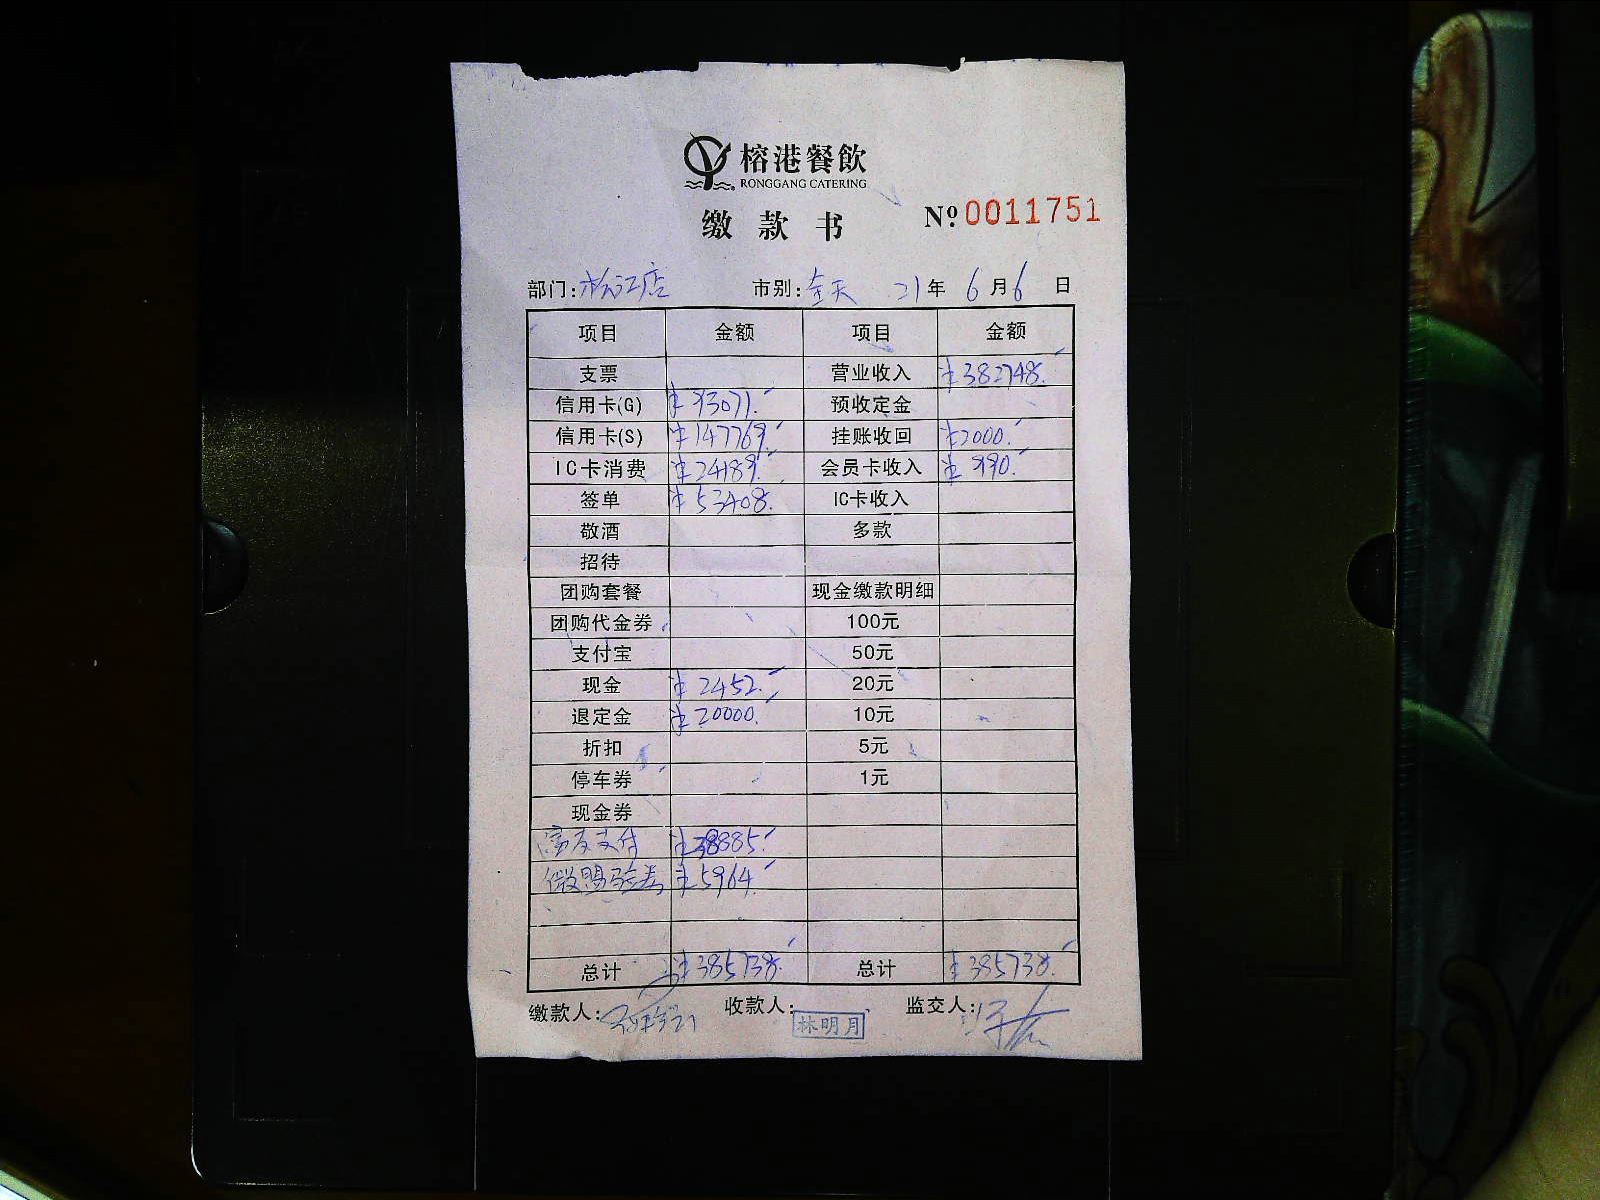 榕港餐飲
RONGGANG CATERING
缴款书 Nº 0011751
部门: 松江店 市别: 全天 21年 6月6日
项目 金额 项目 金额
支票 营业收入 ¥382748.
信用卡(G) ¥93071. 预收定金
信用卡(S) ¥147769. 挂账收回 ¥2000.
IC卡消费 ¥24189. 会员卡收入 ¥990.
签单 ¥53408. IC卡收入
敬酒 多款
招待
团购套餐 现金缴款明细
团购代金券 100元
支付宝 50元
现金 ¥2452. 20元
退定金 ¥20000. 10元
折扣 5元
停车券 1元
现金券
富友支付 ¥38885.
微盟验券 ¥5964.
总计 ¥385738. 总计 ¥385738.
缴款人: 收款人: 林明月 监交人: